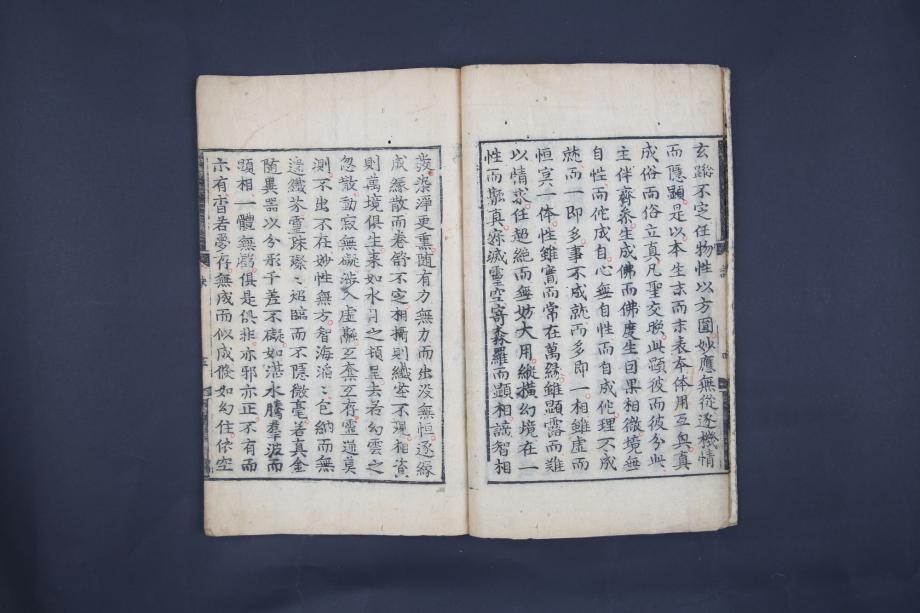 玄蹤不定任物性以方圓妙應無從逐機情
而隱顕是以本生末而末表本体用互興真
成俗而俗立真凡聖交映此顕彼而彼分此
主伴齊叅生成佛而佛度生因果相徹境無
自性而佗成自心無自性而自成佗理不成
就而一即多事不成就而多即一相雖虛而
恒冥一体性雖實而常在萬緣雖顕露而難
以情求任超絕而無妨大用縱橫幻境在一
性而融真寂滅靈空寄森羅而顕相諦智相
發染淨更熏随有力無力而出没無恒逐緣
成緣散而卷舒不定相攝則纖塵不現相資
則萬境俱生来如水月之頓呈去若幻雲之
忽散動寂無礙涉入虛融互奪互存靈通莫
測不出不在妙性無方智海滔〻包納而無
邊纖芥靈珠璨〻炤臨而不隱微毫若真金
随異器以分形千差不礙如湛水騰羣波而
顕相一體無虧俱是俱非亦邪亦正不有而
示有杳若夢存無成而似成倏如幻住依空
訣
五